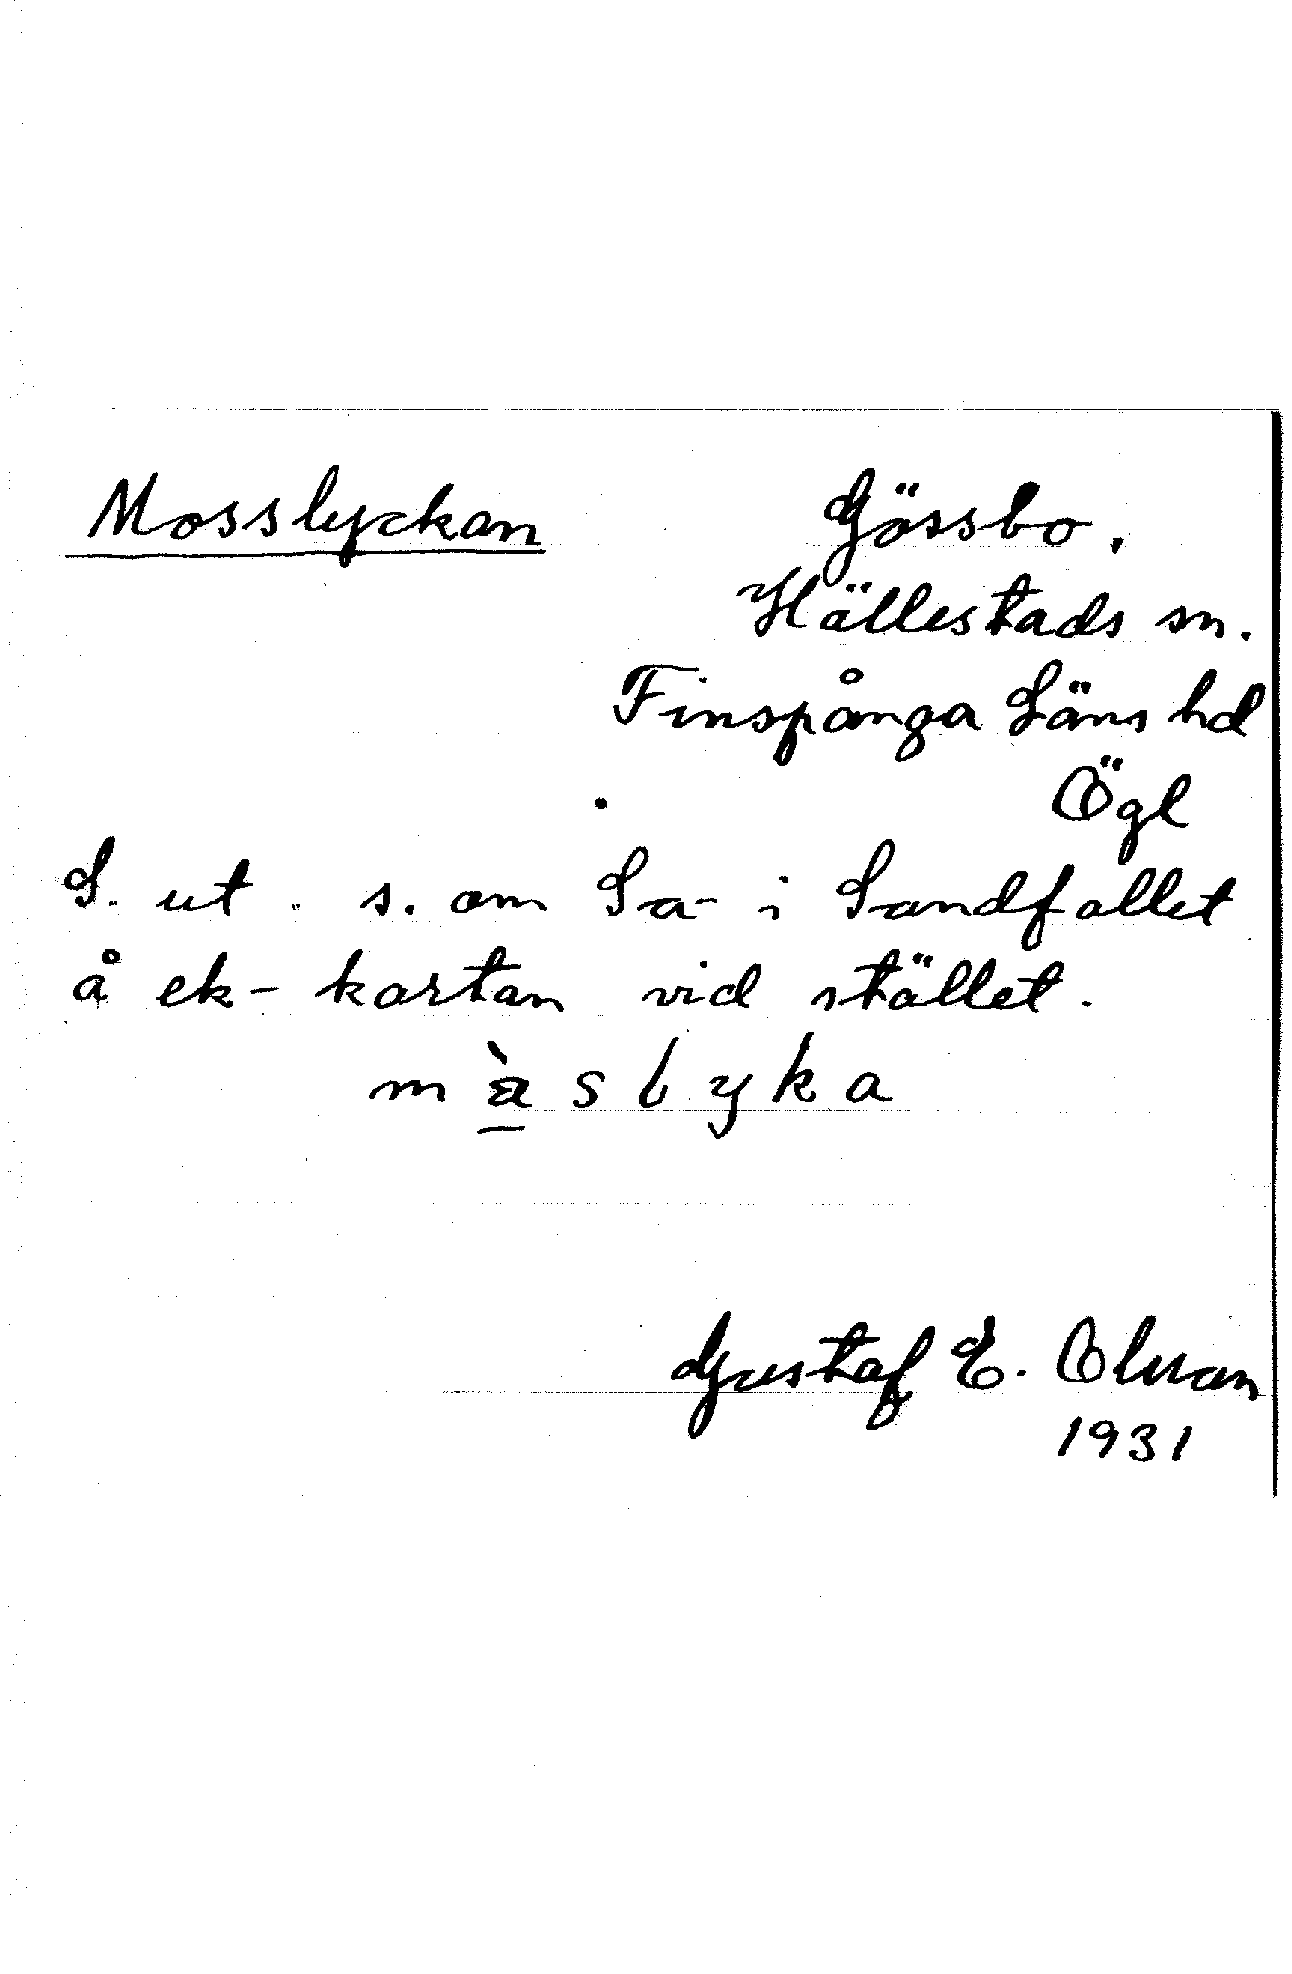 Mosslyckan
Gössbo.
Hällestads sn.
Finspånga Läns hd
Ögl
L. ut. s. om Sa i Sandfallet
å ek-kartan vid stället.
Gustaf E. Olsson
1931